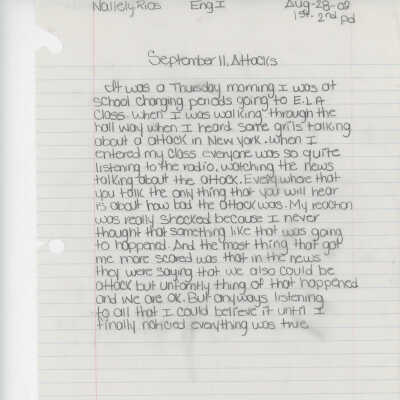 Nallely Rios Eng I Aug-28-08
1st-2nd pd
September 11, Attacks
It was a Thursday morning I was at
school changing periods going to E.L.A
Class. When I was walking through the
hall way when I heard some grils talking
about a attack in New york. When I
entered my class everyone was so quite
listening to the radio, watching the news
talking about the attack. Every where that
you talk the only thing that you will hear
is about how bad the attack was. My reaction
was really shocked because I never
thought that something like that was going
to happened. And the most thing that got
me more scared was that in the news
they were saying that we also could be
attack but unfortly thing of that happened
and we are ok. But anyways listening
to all that I could believe it until I
finally noticed everything was true.